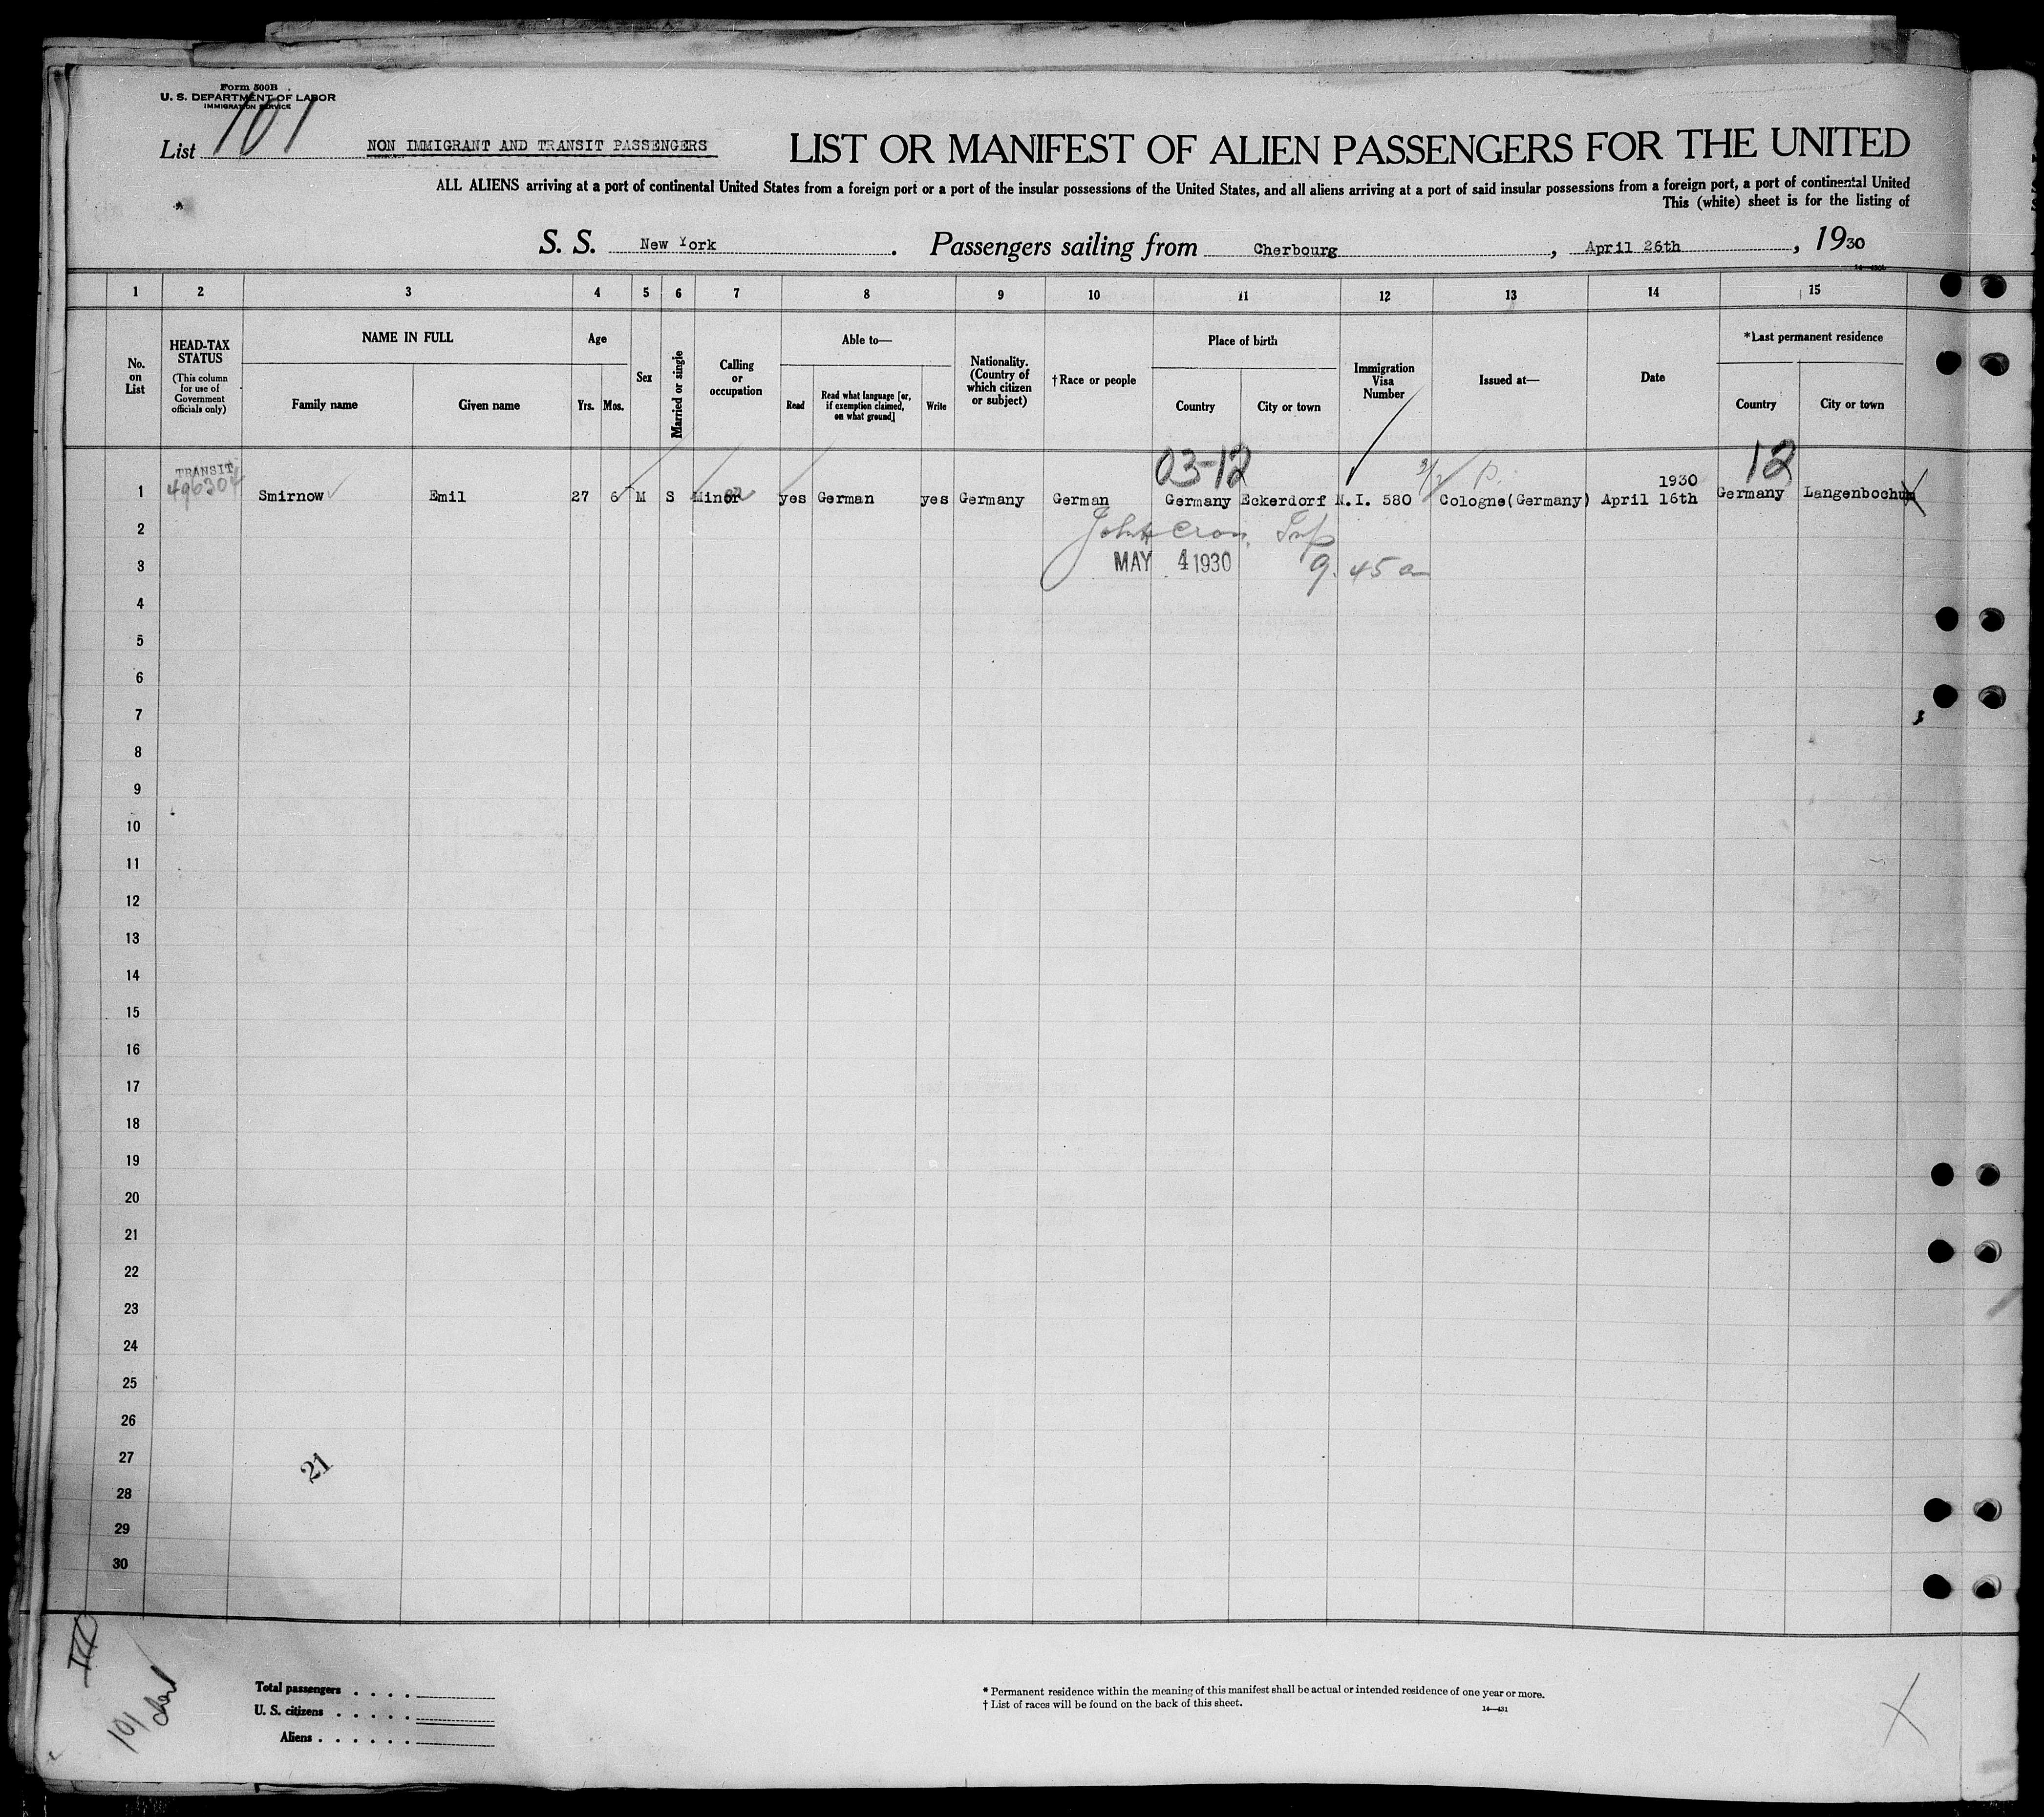 Form 500B
U. S. DEPARTMENT OF LABOR
IMMIGRATION SERVICE
List 101 NON IMMIGRANT AND TRANSIT PASSENGERS LIST OR MANIFEST OF ALIEN PASSENGERS FOR THE UNITED
ALL ALIENS arriving at a port of continental United States from a foreign port or a port of the insular possessions of the United States, and all aliens arriving at a port of said insular possessions from a foreign port, a port of continental United
This (white) sheet is for the listing of
S. S. New York . Passengers sailing from Cherbourg , April 26th , 1930
1 2 3 4 5 6 7 8 9 10 11 12 13 14 15
No. on List
HEAD-TAX STATUS
(This column for use of Government officials only)
NAME IN FULL
Family name Given name
Age
Yrs. Mos.
Sex
Married or single
Calling or occupation
Able to—
Read Read what language [or, if exemption claimed, on what ground] Write
Nationality. (Country of which citizen or subject)
†Race or people
Place of birth
Country City or town
Immigration Visa Number
Issued at—
Date
*Last permanent residence
Country City or town
03-12 12
TRANSIT 1930
496304
1 Smirnow Emil 27 6 M S Minor yes German yes Germany German Germany Eckerdorf N.I. 580 Cologne(Germany) April 16th Germany Langenbochum
2
3 MAY 4 1930 9.45 a
4
5
6
7
8
9
10
11
12
13
14
15
16
17
18
19
20
21
22
23
24
25
26
27
21
28
29
30
III
101
Total passengers . . . .
U. S. citizens . . . . .
Aliens . . . . . .
* Permanent residence within the meaning of this manifest shall be actual or intended residence of one year or more.
† List of races will be found on the back of this sheet.
14—431
X